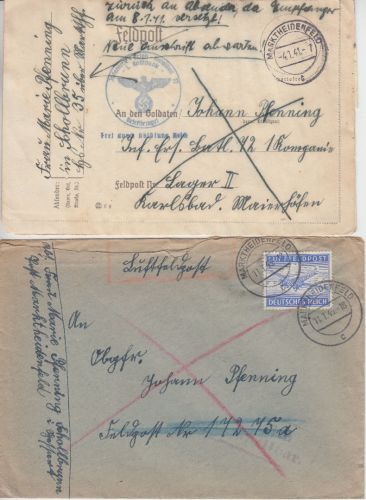 zurück an Absender da Empfänger
am 8.1.41. versetzt!
Feldpost
Neue Anschrift abwarten
MARKTHEIDENFELD
-4.1.41.-7
c
An den Soldaten
Johann Pfenning
Frei durch Ablösung Reich
Inf. Ers. Batl. 12 1 Kompanie
Feldpost Nr
Lager II
Karlsbad. Maierhöfen
Absender:
Frau Marie Pfenning
in Schollbrunn
35 über Marktheid.
Luftfeldpost
MARKTHEIDENFELD
LUFTFELDPOST
DEUTSCHES REICH
MARKTHEIDENFELD
c
An
Obgfr.
Johann Pfenning
Feldpost Nr 17275a
Abs. Frau Marie Pfenning Schollbrunn
Post Marktheidenfeld